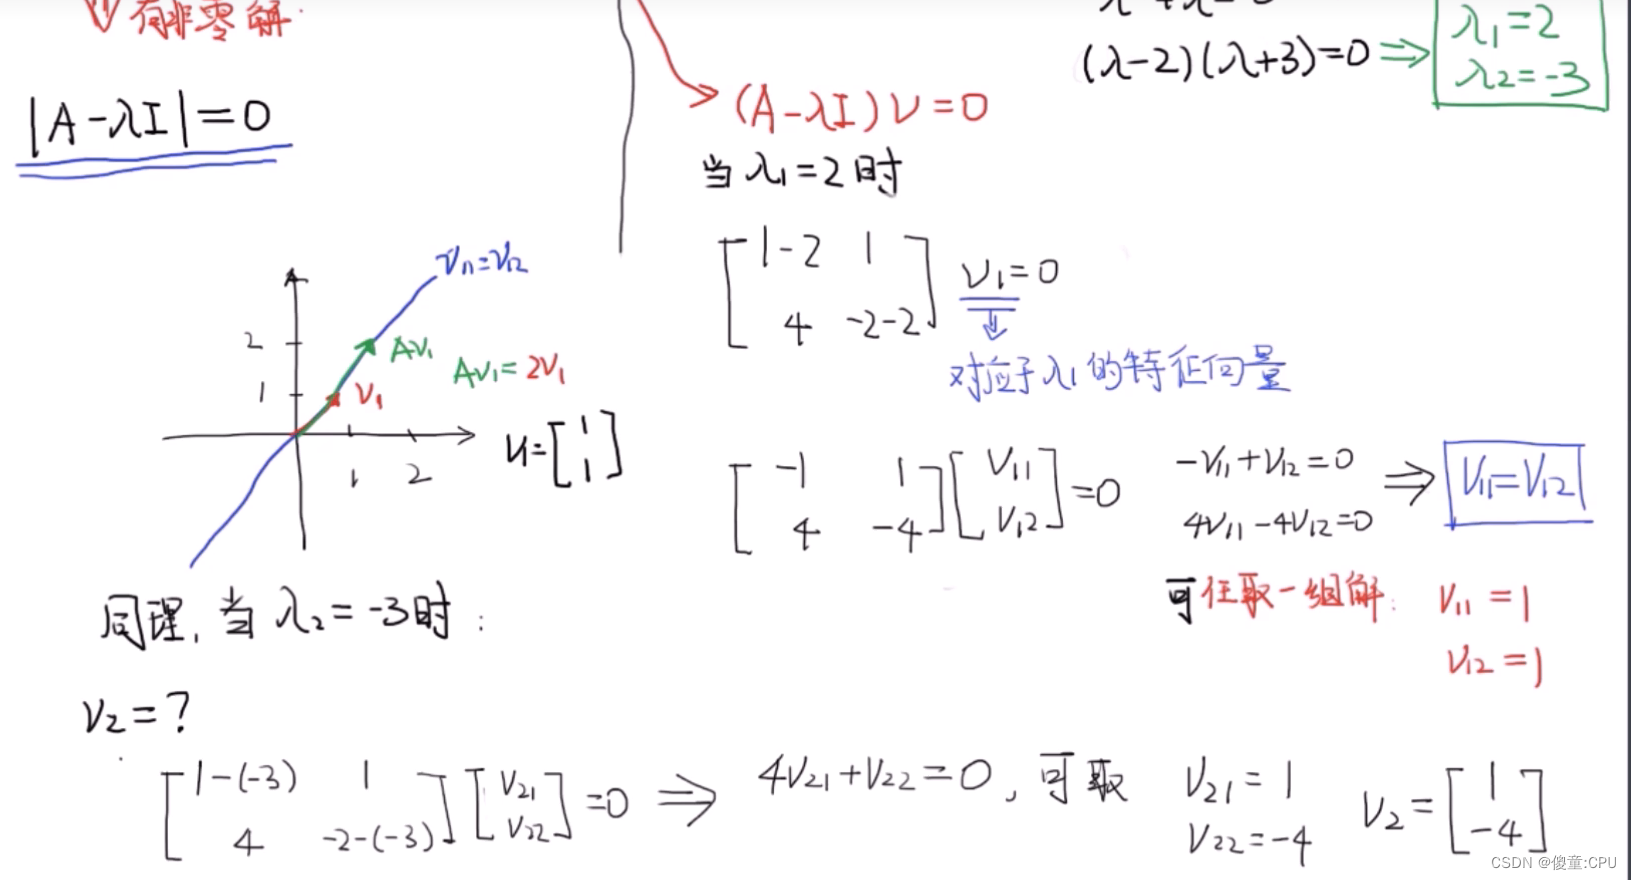 有非零解:
|A-λI|=0
λ1=2
λ2=-3
(λ-2)(λ+3)=0 ⇒
(A-λI)v=0
当 λ1=2时
[1-2 1
4 -2-2] v1=0
⇓
对应于λ1的特征向量
v11=v12
2
1
Av1
v1
Av1=2v1
1 2
v1=[1
1]
[-1 1
4 -4][v11
v12]=0
-v11+v12=0
4v11-4v12=0
⇒ v11=v12
可任取一组解: v11=1
v12=1
同理,当 λ2=-3时:
v2=?
[1-(-3) 1
4 -2-(-3)][v21
v22]=0 ⇒ 4v21+v22=0, 可取
v21=1
v22=-4
v2=[1
-4]
CSDN @傻童:CPU